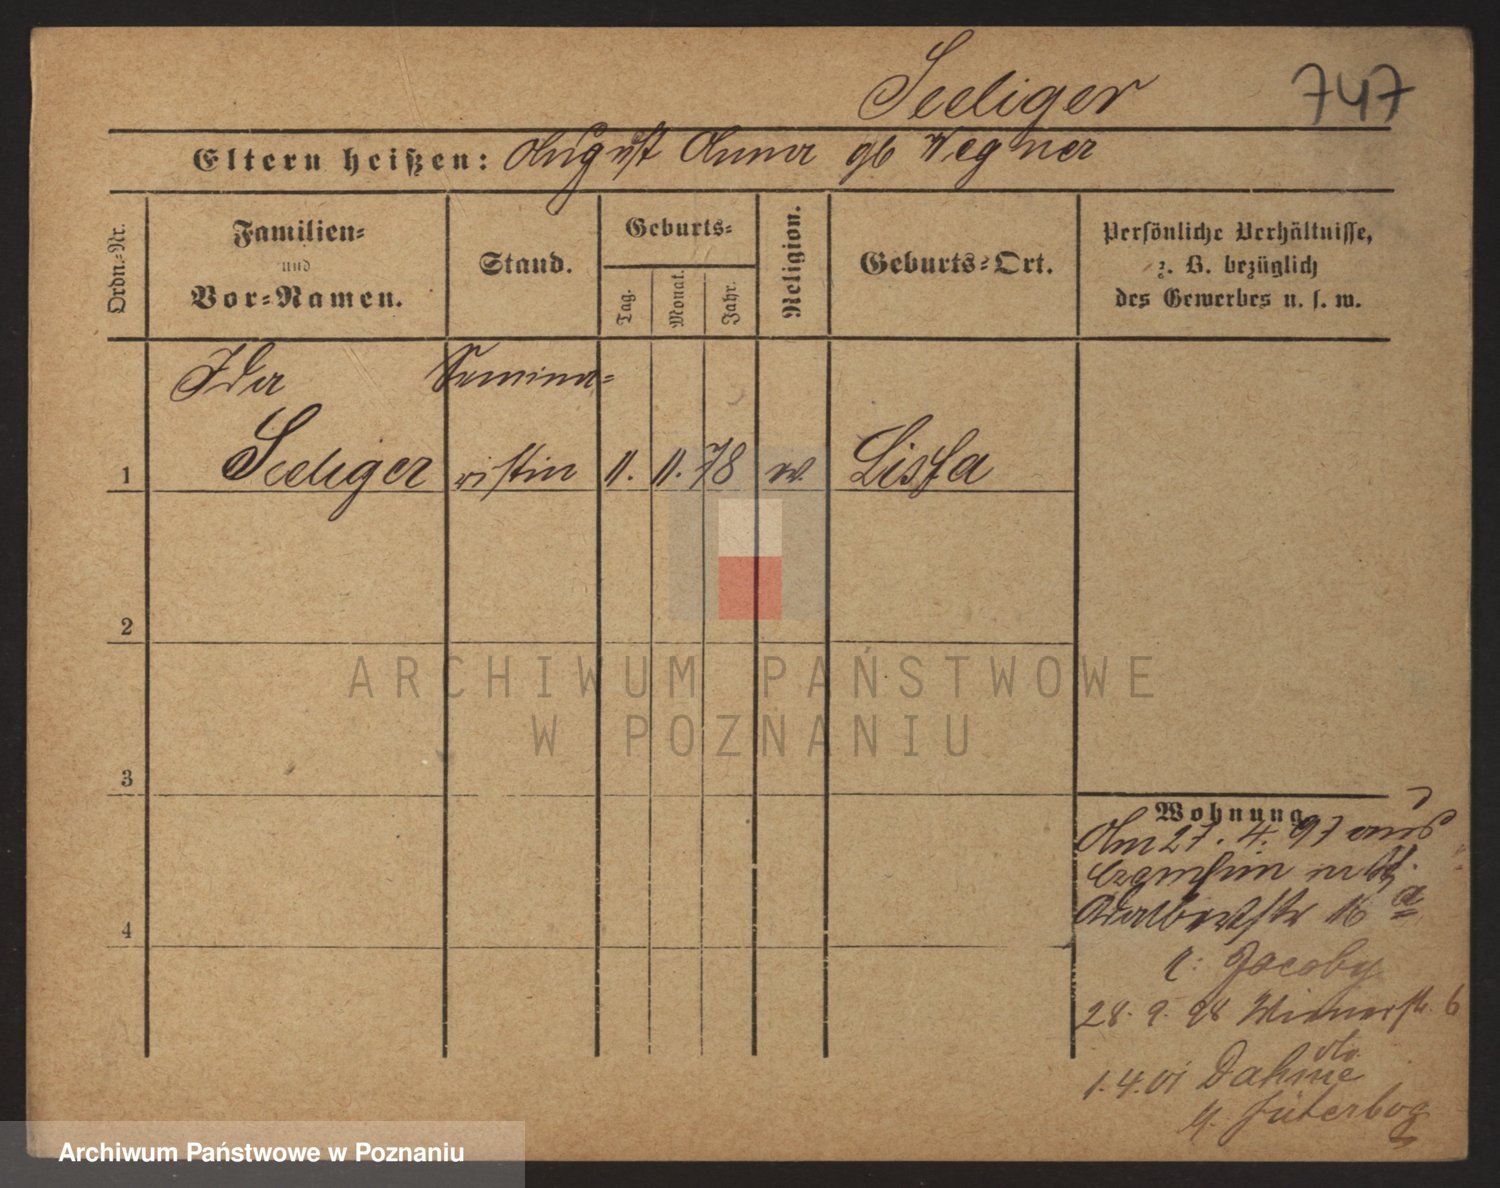 Seeliger 747
Eltern heißen: August Anna gb Wegner
Ordn.-Nr.
Familien-
und
Vor-Namen.
Stand.
Geburts-
Tag.
Monat.
Jahr.
Religion.
Geburts-Ort.
Persönliche Verhältnisse,
z. B. bezüglich
des Gewerbes u. s. w.
Ida Semina-
1 Seeliger ristin 11. 11. 78 Lissa
2
3
4
Wohnung
Am 27. 4. 97 aus
Adalbertstr 16 a
Jacoby
28. 9. 98 Wienerstr. 6
1. 4. 01 Dahme
Jüterbog
ARCHIWUM PAŃSTWOWE
W POZNANIU
Archiwum Państwowe w Poznaniu